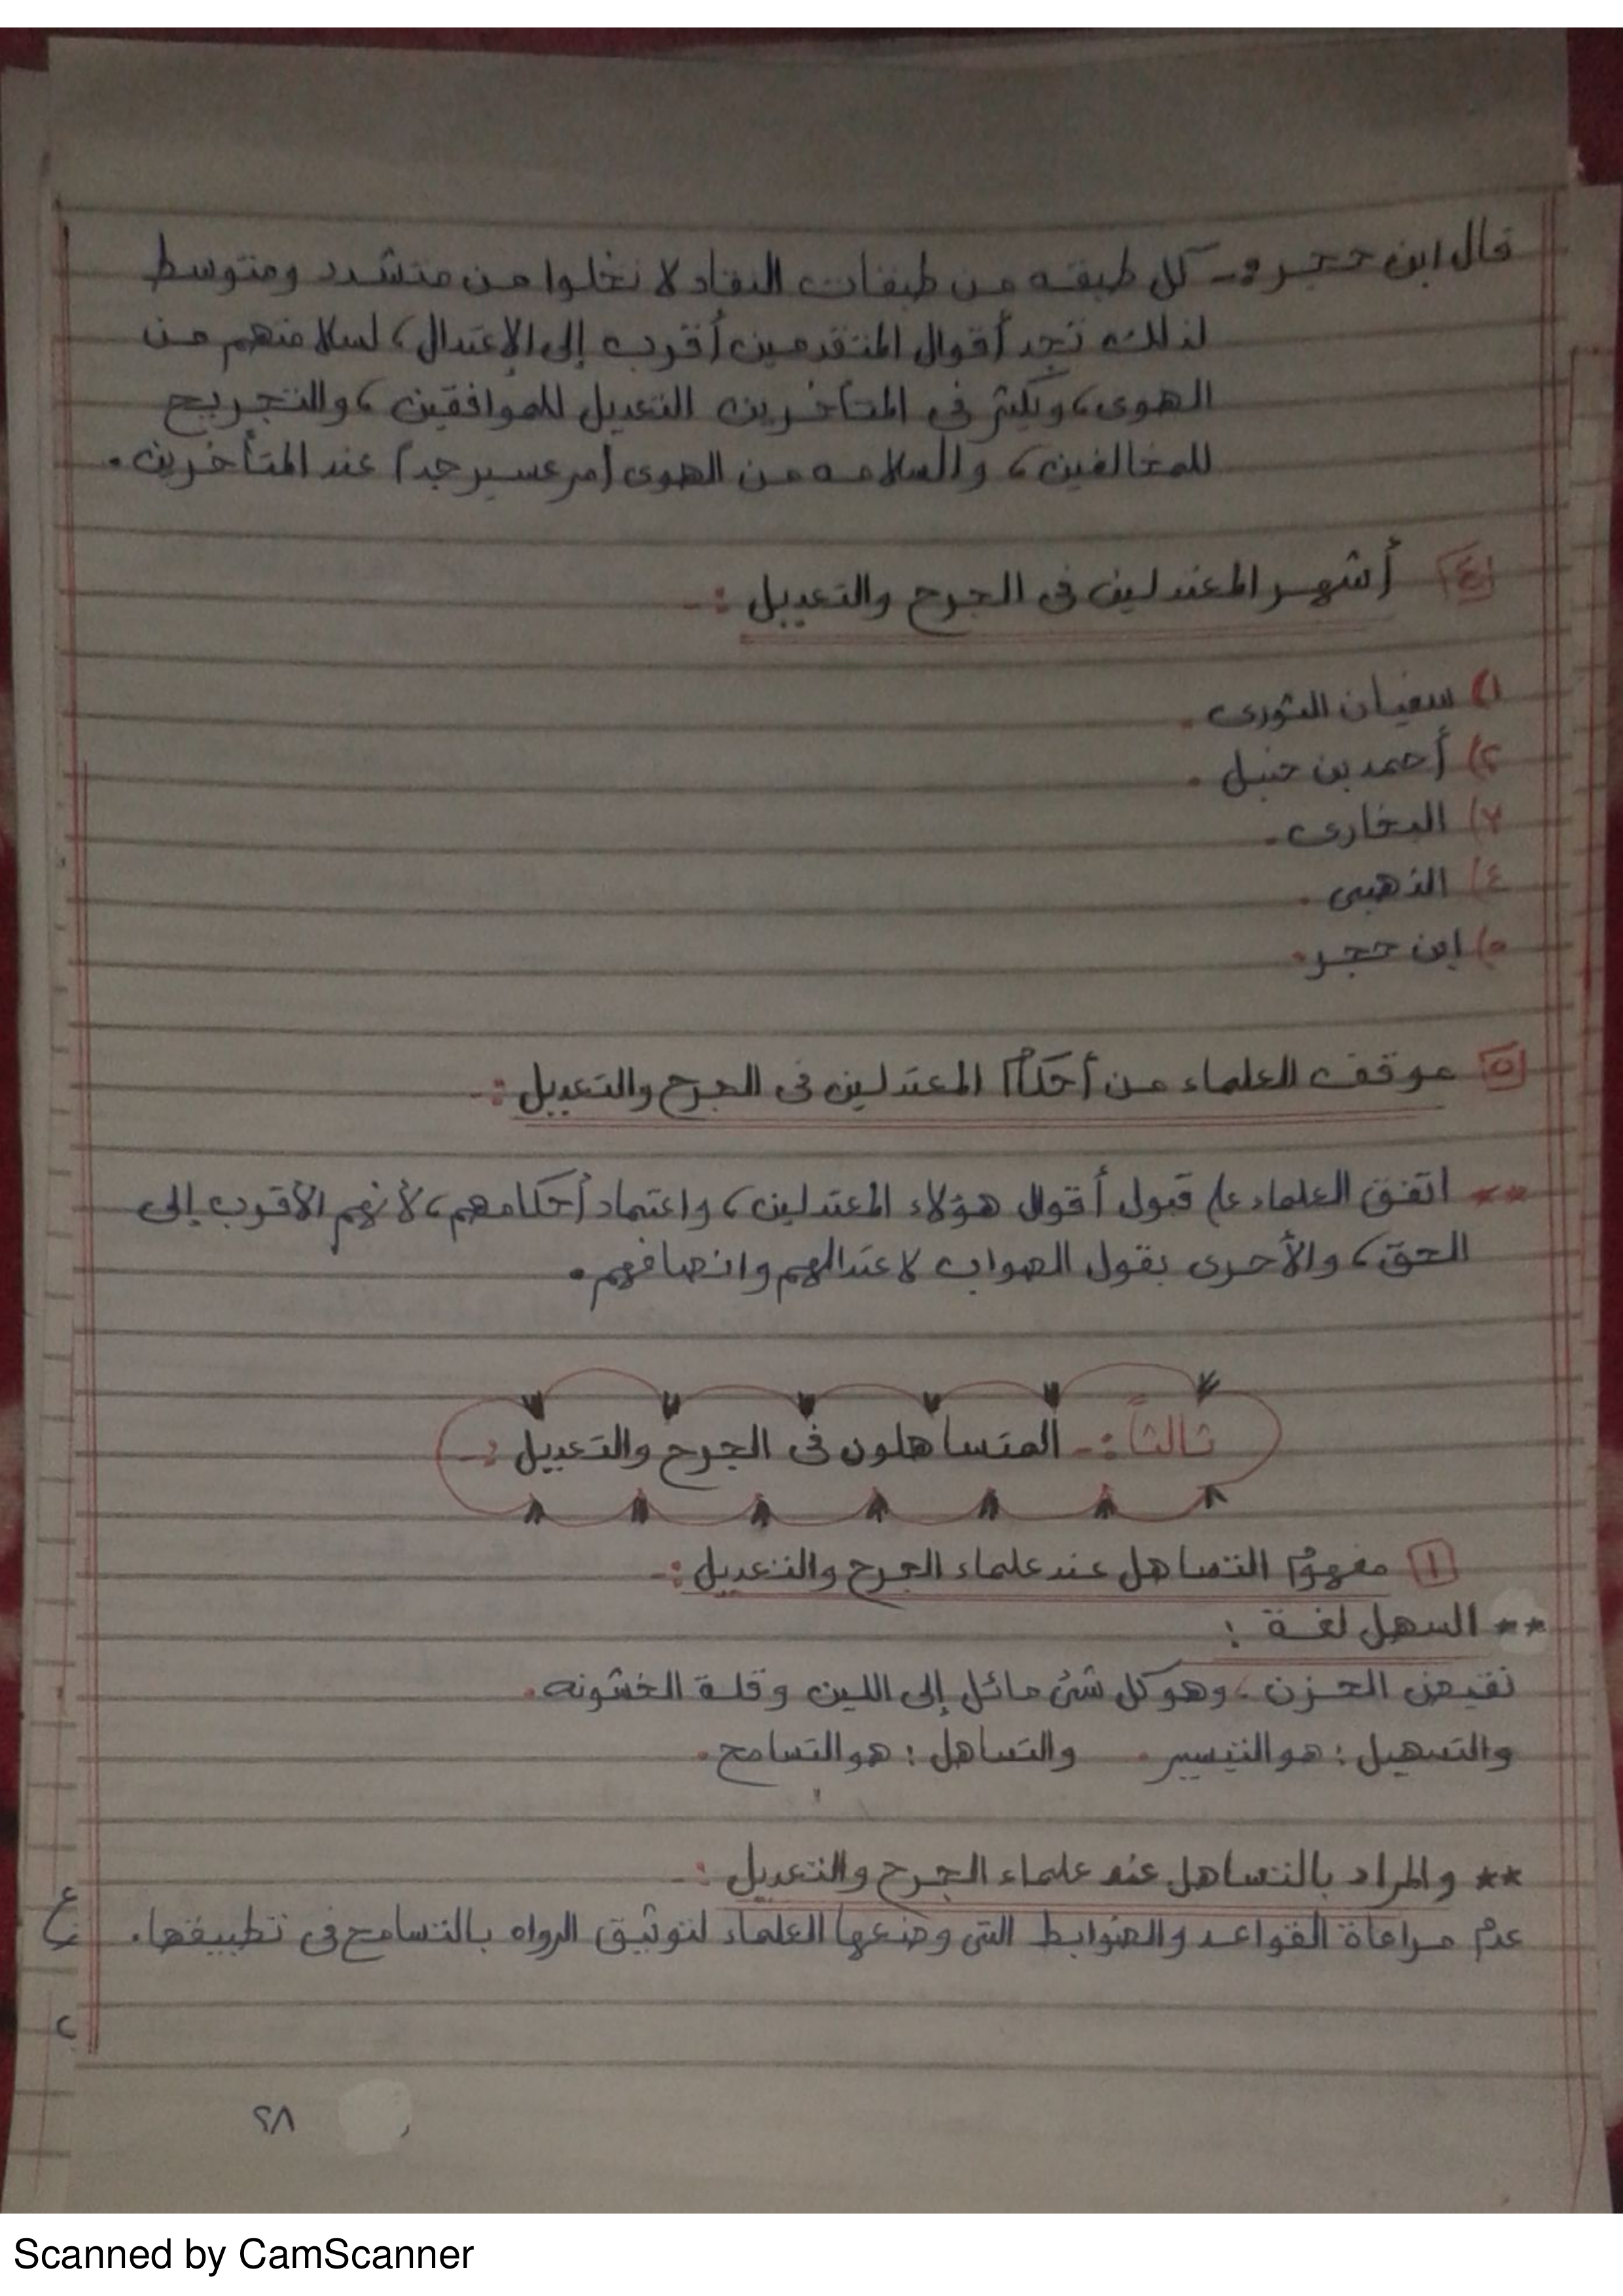 قال ابن حجر :- كل طبقه من طبقات النقاد لا تخلوا من متشدد ومتوسط
لذلك تجد أقوال المتقدمين أقرب إلى الإعتدال، لسلامتهم من
الهوى، ويكثر فى المتأخرين التعديل للموافقين، والتجريح
للمخالفين، والسلامه من الهوى أمر عسير جداً عند المتأخرين.
٤ أشهر المعتدلين فى الجرح والتعديل :-
١) سفيان الثورى.
٢) أحمد بن حنبل.
٣) البخارى.
٤) الذهبى.
٥) ابن حجر.
٥ موقف العلماء من أحكام المعتدلين فى الجرح والتعديل :-
** اتفق العلماء على قبول أقوال هؤلاء المعتدلين، واعتماد أحكامهم، لأنهم الأقرب إلى
الحق، والأحرى بقول الصواب لاعتدالهم وانصافهم.
ثالثاً :- المتساهلون فى الجرح والتعديل :-
١ مفهوم التساهل عند علماء الجرح والتعديل :-
** السهل لغة :
نقيض الحزن، وهو كل شئ مائل إلى اللين وقلة الخشونه.
والتسهيل : هو التيسير. والتساهل : هو التسامح.
** والمراد بالتساهل عند علماء الجرح والتعديل :-
عدم مراعاة القواعد والضوابط التى وضعها العلماء لتوثيق الرواه بالتسامح فى تطبيقها.
٢٨
Scanned by CamScanner